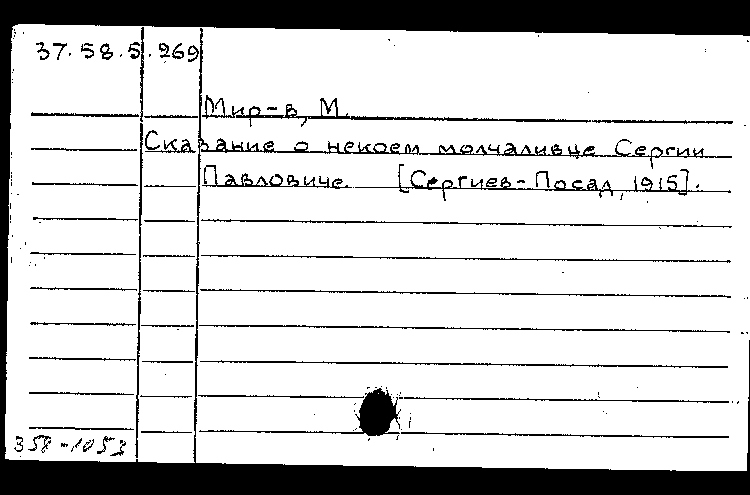 37.58.5.269
Мир-в, М.
Сказание о некоем молчаливце Сергии
Павловиче. [Сергиев-Посад, 1915].
358-1053